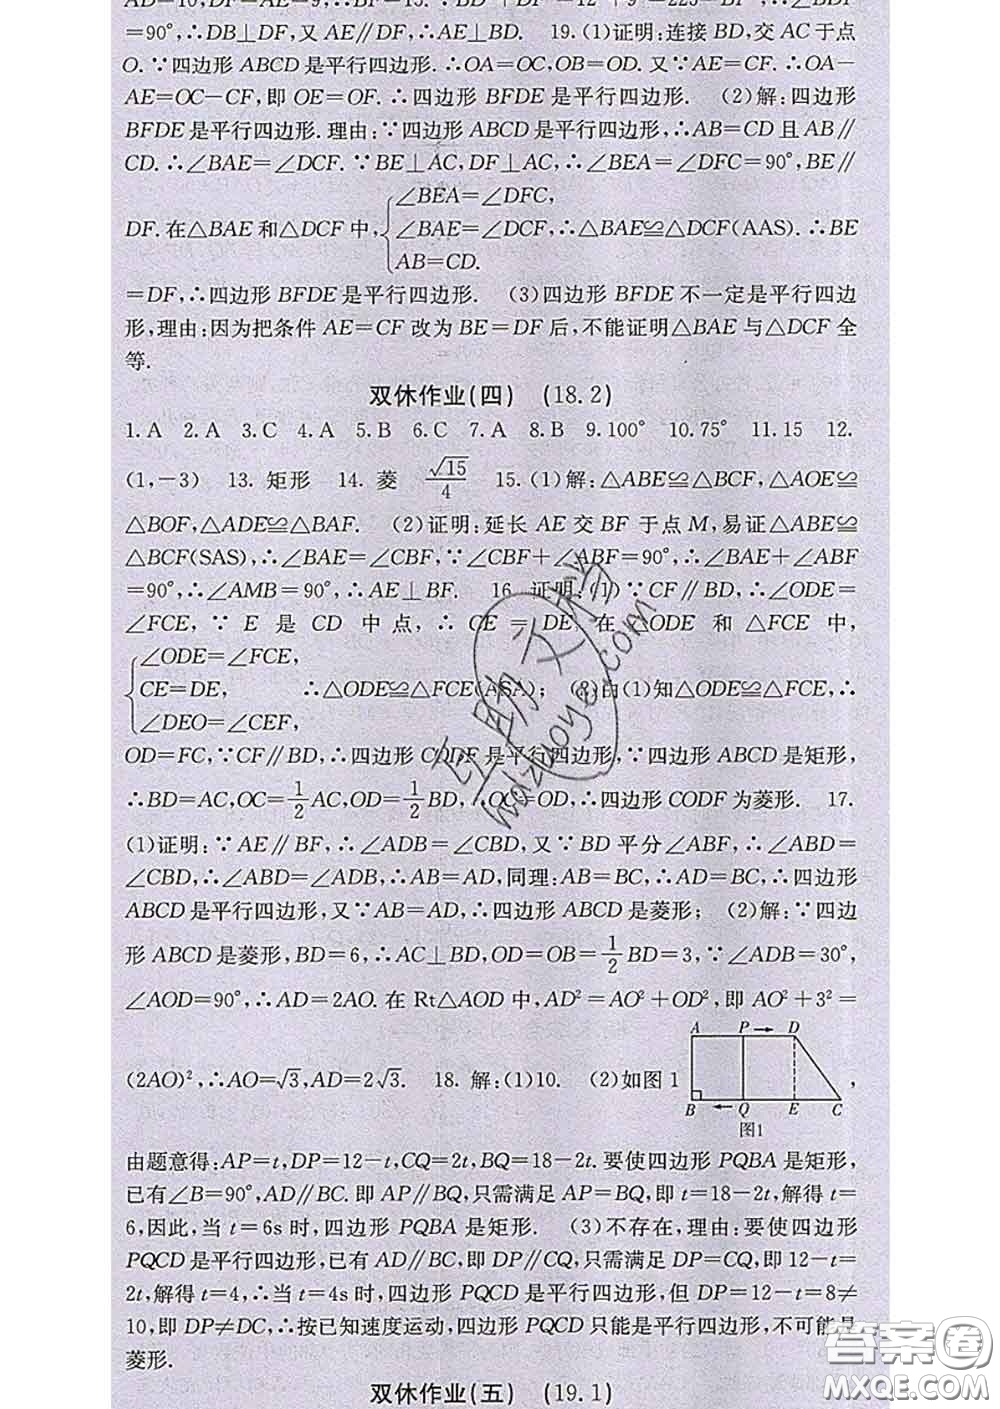 AD=10,DF=AE=9,∴BF=15.∵BD²+DF²=12²+9²=225=BF²,∴∠BDF
=90°,∴DB⊥DF,又AE∥DF,∴AE⊥BD. 19.(1)证明:连接BD,交AC于点
O.∵四边形ABCD是平行四边形.∴OA=OC,OB=OD.又∵AE=CF.∴OA-
AE=OC-CF,即OE=OF.∴四边形BFDE是平行四边形. (2)解:四边形
BFDE是平行四边形.理由:∵四边形ABCD是平行四边形,∴AB=CD且AB∥
CD.∴∠BAE=∠DCF.∵BE⊥AC,DF⊥AC,∴∠BEA=∠DFC=90°,BE∥
∠BEA=∠DFC,
DF.在△BAE和△DCF中,∠BAE=∠DCF,∴△BAE≌△DCF(AAS).∴BE
AB=CD.
=DF,∴四边形BFDE是平行四边形. (3)四边形BFDE不一定是平行四边
形,理由:因为把条件AE=CF改为BE=DF后,不能证明△BAE与△DCF全
等.
双休作业(四) (18.2)
1.A 2.A 3.C 4.A 5.B 6.C 7.A 8.B 9.100° 10.75° 11.15 12.
(1,-3) 13.矩形 14.菱 √15/4 15.(1)解:△ABE≌△BCF,△AOE≌
△BOF,△ADE≌△BAF. (2)证明:延长AE交BF于点M,易证△ABE≌
△BCF(SAS),∴∠BAE=∠CBF,∵∠CBF+∠ABF=90°,∴∠BAE+∠ABF
=90°,∴∠AMB=90°,∴AE⊥BF. 16.证明:(1)∵CF∥BD,∴∠ODE=
∠FCE,∵E是CD中点,∴CE=DE,在△ODE和△FCE中,
∠ODE=∠FCE,
CE=DE, ∴△ODE≌△FCE(ASA); (2)由(1)知△ODE≌△FCE,∴
∠DEO=∠CEF,
OD=FC,∵CF∥BD,∴四边形CODF是平行四边形,∵四边形ABCD是矩形,
∴BD=AC,OC=1/2AC,OD=1/2BD,∴OC=OD,∴四边形CODF为菱形. 17.
(1)证明:∵AE∥BF,∴∠ADB=∠CBD,又∵BD平分∠ABF,∴∠ABD=
∠CBD,∴∠ABD=∠ADB,∴AB=AD,同理:AB=BC,∴AD=BC,∴四边形
ABCD是平行四边形,又∵AB=AD,∴四边形ABCD是菱形; (2)解:∵四边
形ABCD是菱形,BD=6,∴AC⊥BD,OD=OB=1/2BD=3,∵∠ADB=30°,
∠AOD=90°,∴AD=2AO.在Rt△AOD中,AD²=AO²+OD²,即AO²+3²=
A P D
(2AO)²,∴AO=√3,AD=2√3. 18.解:(1)10. (2)如图1 ,
B Q E C
图1
由题意得:AP=t,DP=12-t,CQ=2t,BQ=18-2t.要使四边形PQBA是矩形,
已有∠B=90°,AD∥BC.即AP∥BQ,只需满足AP=BQ,即t=18-2t,解得t=
6,因此,当t=6s时,四边形PQBA是矩形. (3)不存在,理由:要使四边形
PQCD是平行四边形,已有AD∥BC,即DP∥CQ,只需满足DP=CQ,即12-t=
2t,解得t=4,∴当t=4s时,四边形PQCD是平行四边形,但DP=12-t=8≠
10,即DP≠DC,∴按已知速度运动,四边形PQCD只能是平行四边形,不可能是
菱形.
双休作业(五) (19.1)
互助文件
hdzuoye.com
答案圈
MXQE.COM